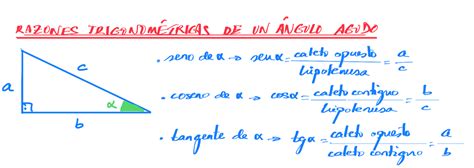 RAZONES TRIGONOMÉTRICAS DE UN ÁNGULO AGUDO
a
c
α
b
• seno de α → sen α = cateto opuesto / hipotenusa = a / c
• coseno de α → cos α = cateto contiguo / hipotenusa = b / c
• tangente de α → tg α = cateto opuesto / cateto contiguo = a / b